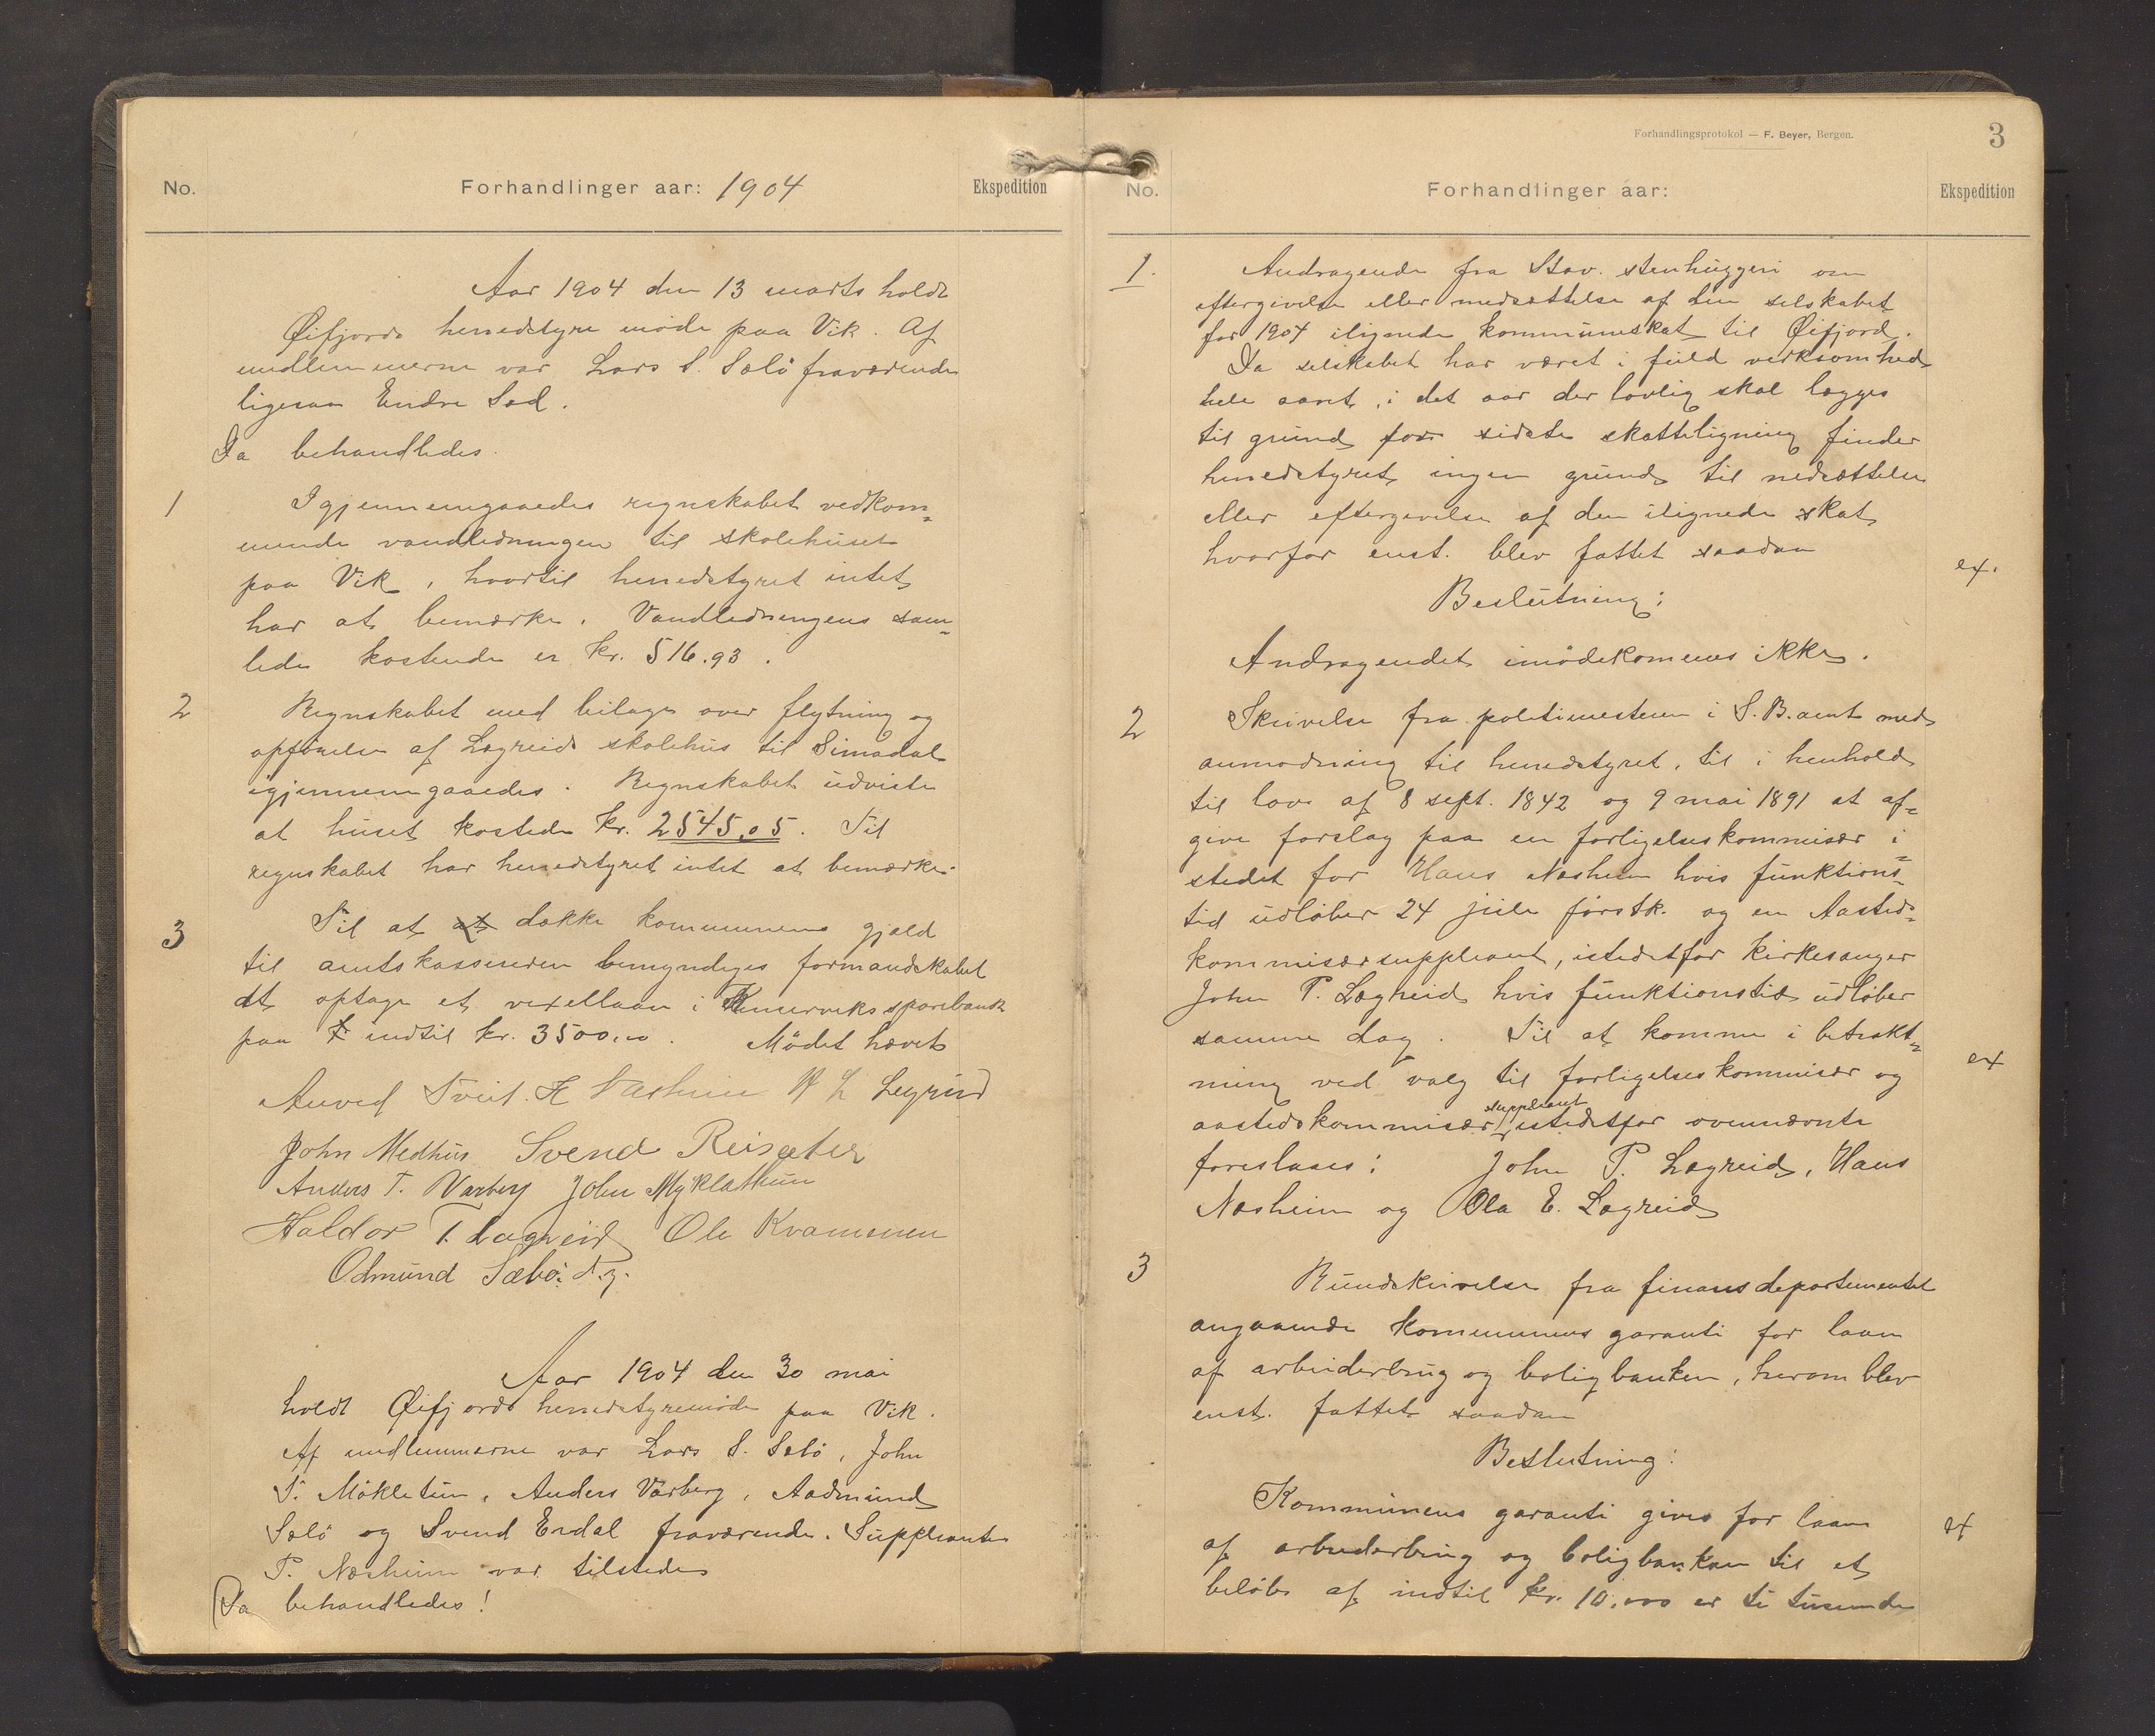 No.
Forhandlinger aar: 1904
Ekspedition
Aar 1904 den 13 marts holdt
Øifjords herredstyre möde paa Vik. Af
medlemmerne var Lars S. Sælö fraværende
ligesaa Endre Sæd.
Da behandledes.
1
Igjennemgaaedes regnskabet vedkom=
mende vandledningen til skolehuset
paa Vik, hvortil herredstyret intet
har at bemærke. Vandledningens sam=
lede kostende er kr. 516.93.
2
Regnskabet med bilage over flytning og
opförelse af Lægreids skolehus til Simadal
igjennemgaaedes. Regnskabet udviste
at huset kostede kr. 2545,05. Til
regnskabet har herredstyret intet at bemærke.
3
Til at at dække kommunens gjæld
til amtskassereren bemyndiges formandskabet
at optage et vexellaan i sparebank
paa indtil kr. 3500,00. Mödet hævet
Anved Tveit. H Næsheim H L Legreid
John Medhus Svend Reisæter
Anders T. Varberg John Myklathun
Haldor T. Lægreid Ole Kvammen
Odmund Sæbö.
Aar 1904 den 30 mai
holdt Øifjords herredstyremöde paa Vik.
Af medlemmerne var Lars S. Sælö, John
S. Mökletun, Anders Varberg, Aadmund
Sælö og Svend Erdal fraværende. Suppleant
P. Næsheim var tilstede
Da behandledes!
Forhandlingsprotokol — F. Beyer, Bergen.
3
No.
Forhandlinger aar:
Ekspedition
1.
Andragende fra Stav. stenhuggeri om
eftergivelse eller nedsættelse af den selskabet
for 1904 ilignede kommuneskat til Øifjord.
Da selskabet har været i fuld virksomhed
hele aaret, i det aar der lovlig skal lægges
til grund for sidste skatteligning finder
herredstyret ingen grund til nedsættelse
eller eftergivelse af den ilignede skat
hvorfor enst. blev fattet saadan
ex.
Beslutning:
Andragendet imödekommes ikke.
2
Skrivelse fra politimesteren i S. B. amt med
anmodning til herredstyret, til i henhold
til lov af 8 sept. 1842 og 9 mai 1891 at af=
give forslag paa en forligelseskommisær i
stedet for Hans Næsheim hvis funktions=
tid udlöber 24 juli förstk. og en Aasteds=
kommisærsuppleant, istedetfor kirkesanger
John P. Lægreid hvis funktionstid udlöber
samme dag. Til at komme i betrakt=
ex
ning ved valg til forligelseskommisær og
aastedskommisær suppleant istedetfor ovennævnte
foreslaaes: John P. Lægreid, Hans
Næsheim og Ola E. Lægreid
3
Rundskrivelse fra finansdepartementet
angaaende kommunens garanti for laan
af arbeiderbrug og boligbanken, herom blev
enst. fattet saadan
Beslutning:
Kommunens garanti gives for laan
ex
af arbeiderbrug og boligbanken til et
belöb af indtil kr. 10.000 er ti tusende